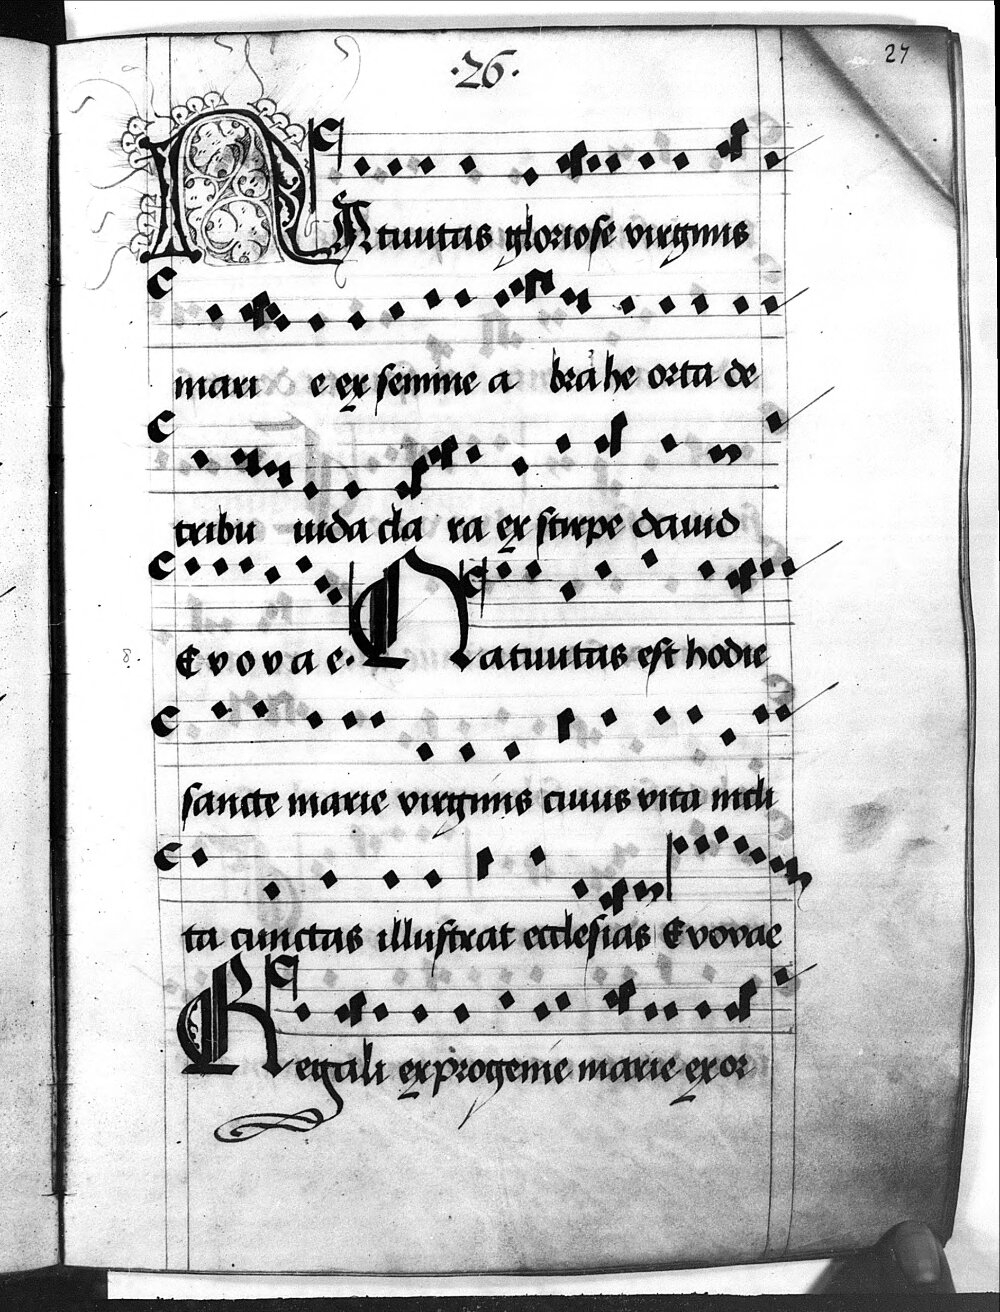 ·26·
27
NAtiuitas gloriose virginis
mari e ex semine a bra he orta de
tribu iuda cla ra ex stirpe dauid
E v o v a e. Natiuitas est hodie
8.
sancte marie virginis cuius vita incli
ta cunctas illustrat ecclesias Evovae
Regali ex progenie maria exor